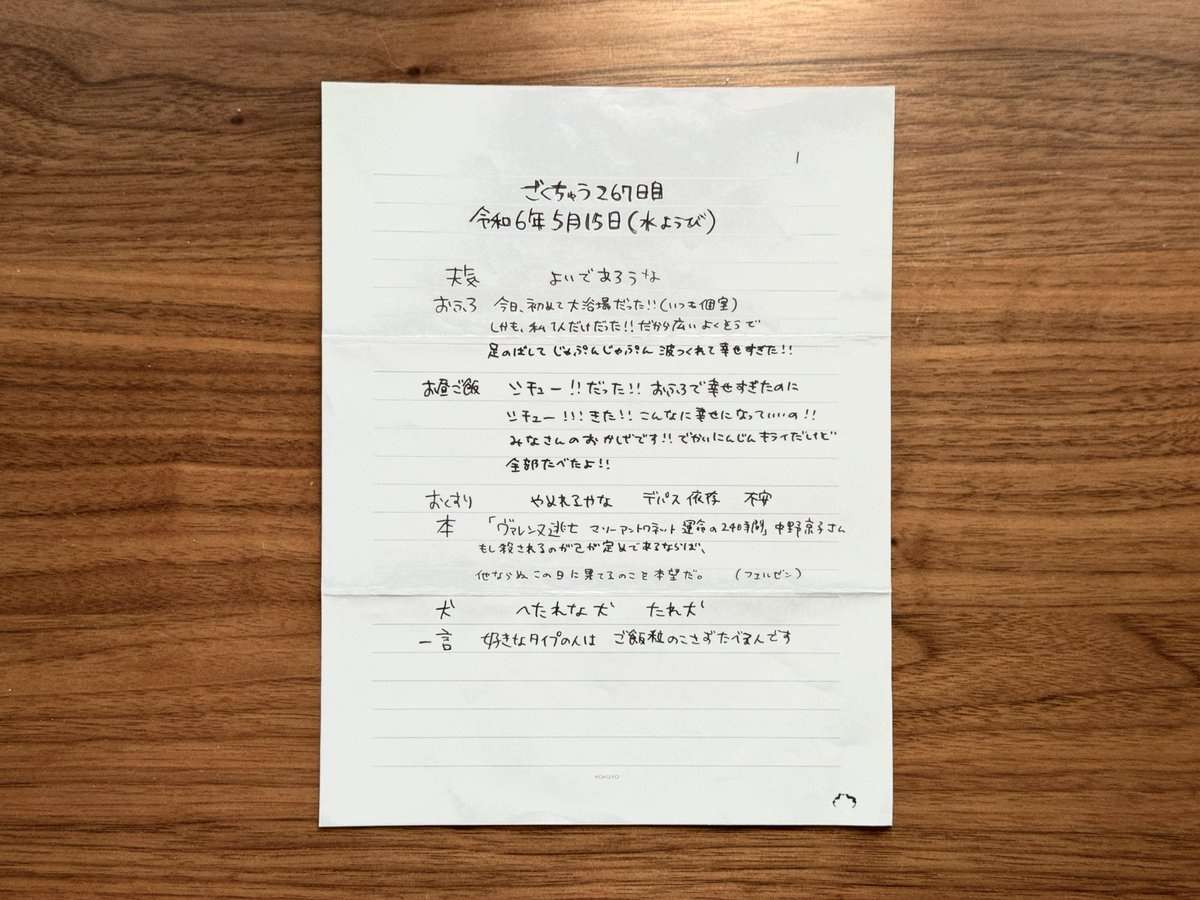 1
ざくちゅう267日目
令和6年5月15日(水ようび)
天気 よいであろうな
おふろ 今日、初めて大浴場だった!!(いつも個室)
しかも、私1人だけだった!!だから広いよくそうで
足のばして じゃぷんじゃぷん 波つくれて幸せすぎた!!
お昼ご飯 シチュー!!だった!! おふろで幸せすぎたのに
シチュー!!!きた!! こんなに幸せになっていいの!!
みなさんのおかげです!!でかいにんじんキライだけど
全部たべたよ!!
おくすり やめれるかな デパス依存 不安
本 「ヴァレンヌ逃亡 マリーアントワネット 運命の24時間」中野京子さん
もし殺されるのが己が定めであるならば、
他ならぬこの日に果てるのこそ本望だ。 (フェルゼン)
犬 へたれな犬 たれ犬
一言 好きなタイプの人は ご飯粒のこさずたべる人です
KOKUYO